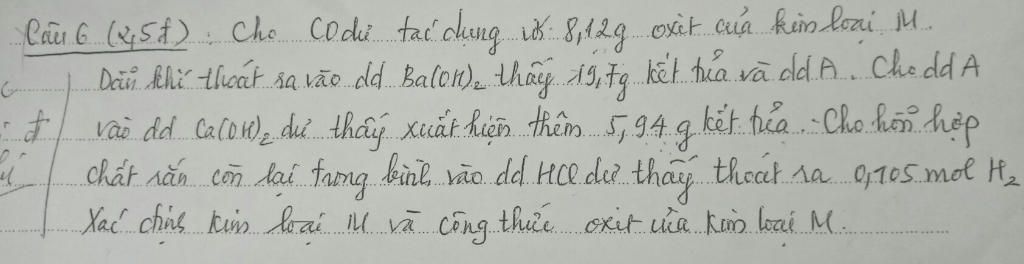 Câu 6 (2,5đ). Cho CO dư tác dụng với 8,12g oxit của kim loại M.
Dẫn khí thoát ra vào dd Ba(OH)2 thấy 19,7g kết tủa và dd A. Cho dd A
vào dd Ca(OH)2 dư thấy xuất hiện thêm 5,94 g kết tủa. Cho hỗn hợp
chất rắn còn lại trong bình vào dd HCl dư thấy thoát ra 0,105 mol H2
Xác định kim loại M và công thức oxit của kim loại M.